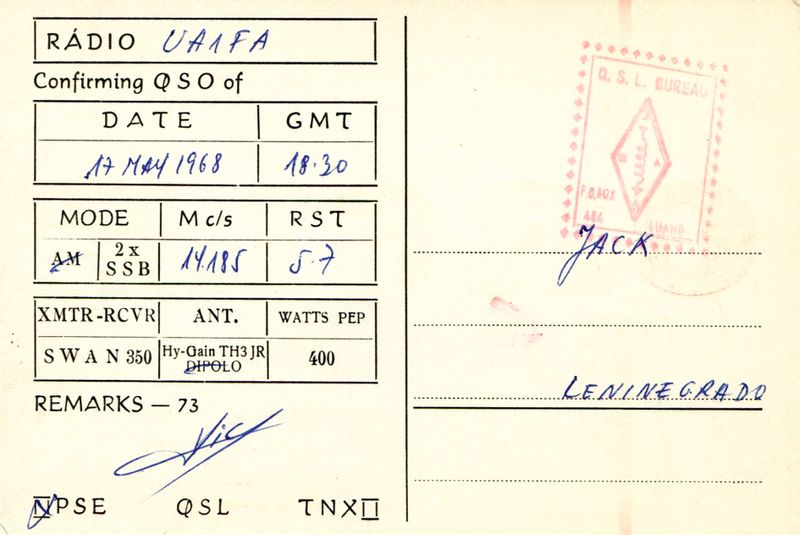 RÁDIO UA1FA
Confirming QSO of
DATE GMT
17 MAY 1968 18.30
MODE Mc/s RST
AM 2x SSB 14.185 5-7
XMTR-RCVR ANT. WATTS PEP
SWAN 350 Hy-Gain TH3 JR DIPOLO 400
REMARKS — 73
Vic
PSE QSL TNX
Q.S.L. BUREAU
P.O.BOX
484 LUAND
JACK
LENINEGRADO